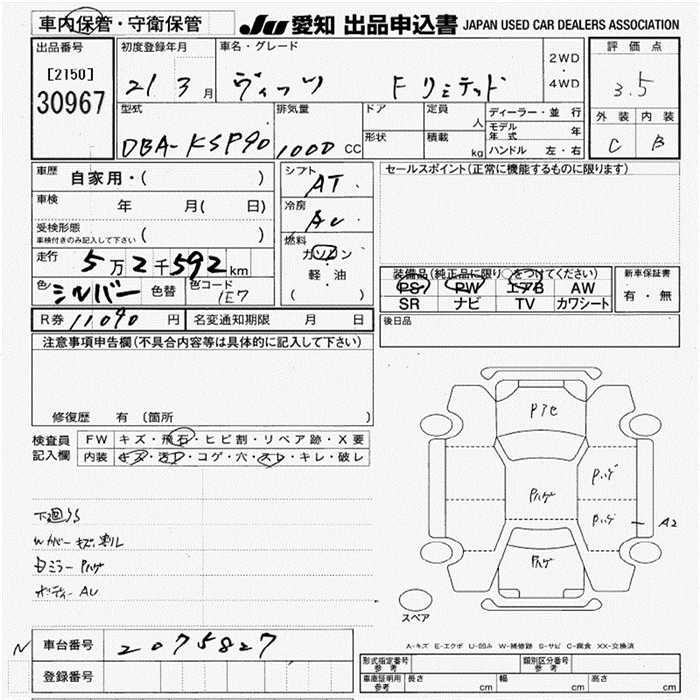 車内保管・守衛保管
JU 愛知 出品申込書 JAPAN USED CAR DEALERS ASSOCIATION
出品番号
[2150]
30967
初度登録年月
21 3 月
車名・グレード
ヴィッツ F リミテッド
2WD
・
4WD
評価点
3.5
外装 内装
C B
型式
DBA-KSP90
排気量
1000 CC
ドア
形状
定員
人
積載
kg
ディーラー・並行
モデル年式 年
ハンドル 左・右
車歴 自家用・( )
車検 年 月( 日)
受検形態
車検付きのみ記入して下さい ( )
走行 5万2千592km
色 シルバー 色替 色コード 1E7
シフト
AT
冷房
AC
燃料
ガソリン
・
軽油
( )
セールスポイント(正常に機能するものに限ります)
装備品(純正品に限り○をつけてください)
PS PW エアB AW
SR ナビ TV カワシート
新車保証書
有・無
R券 11090 円 名変通知期限 月 日
後日品
注意事項申告欄(不具合内容等は具体的に記入して下さい)
修復歴 有 〔箇所 〕
検査員記入欄
FW キズ・飛石・ヒビ割・リペア跡・X要
内装 キズ・汚レ・コゲ・穴・スレ・キレ・破レ
下回りS
Wカバー キズ 割レ
ミラー Pハゲ
ボディー AU
Pハゲ
Pハゲ
Pハゲ
Pハゲ
A2
スペア
A-キズ E-エクボ U-凹み W-補修跡 S-サビ C-腐食 XX-交換済
車台番号 2075827
登録番号
型式指定番号
参考
類別区分番号
参考
車庫証明用
参考
長さ cm 幅 cm 高さ cm